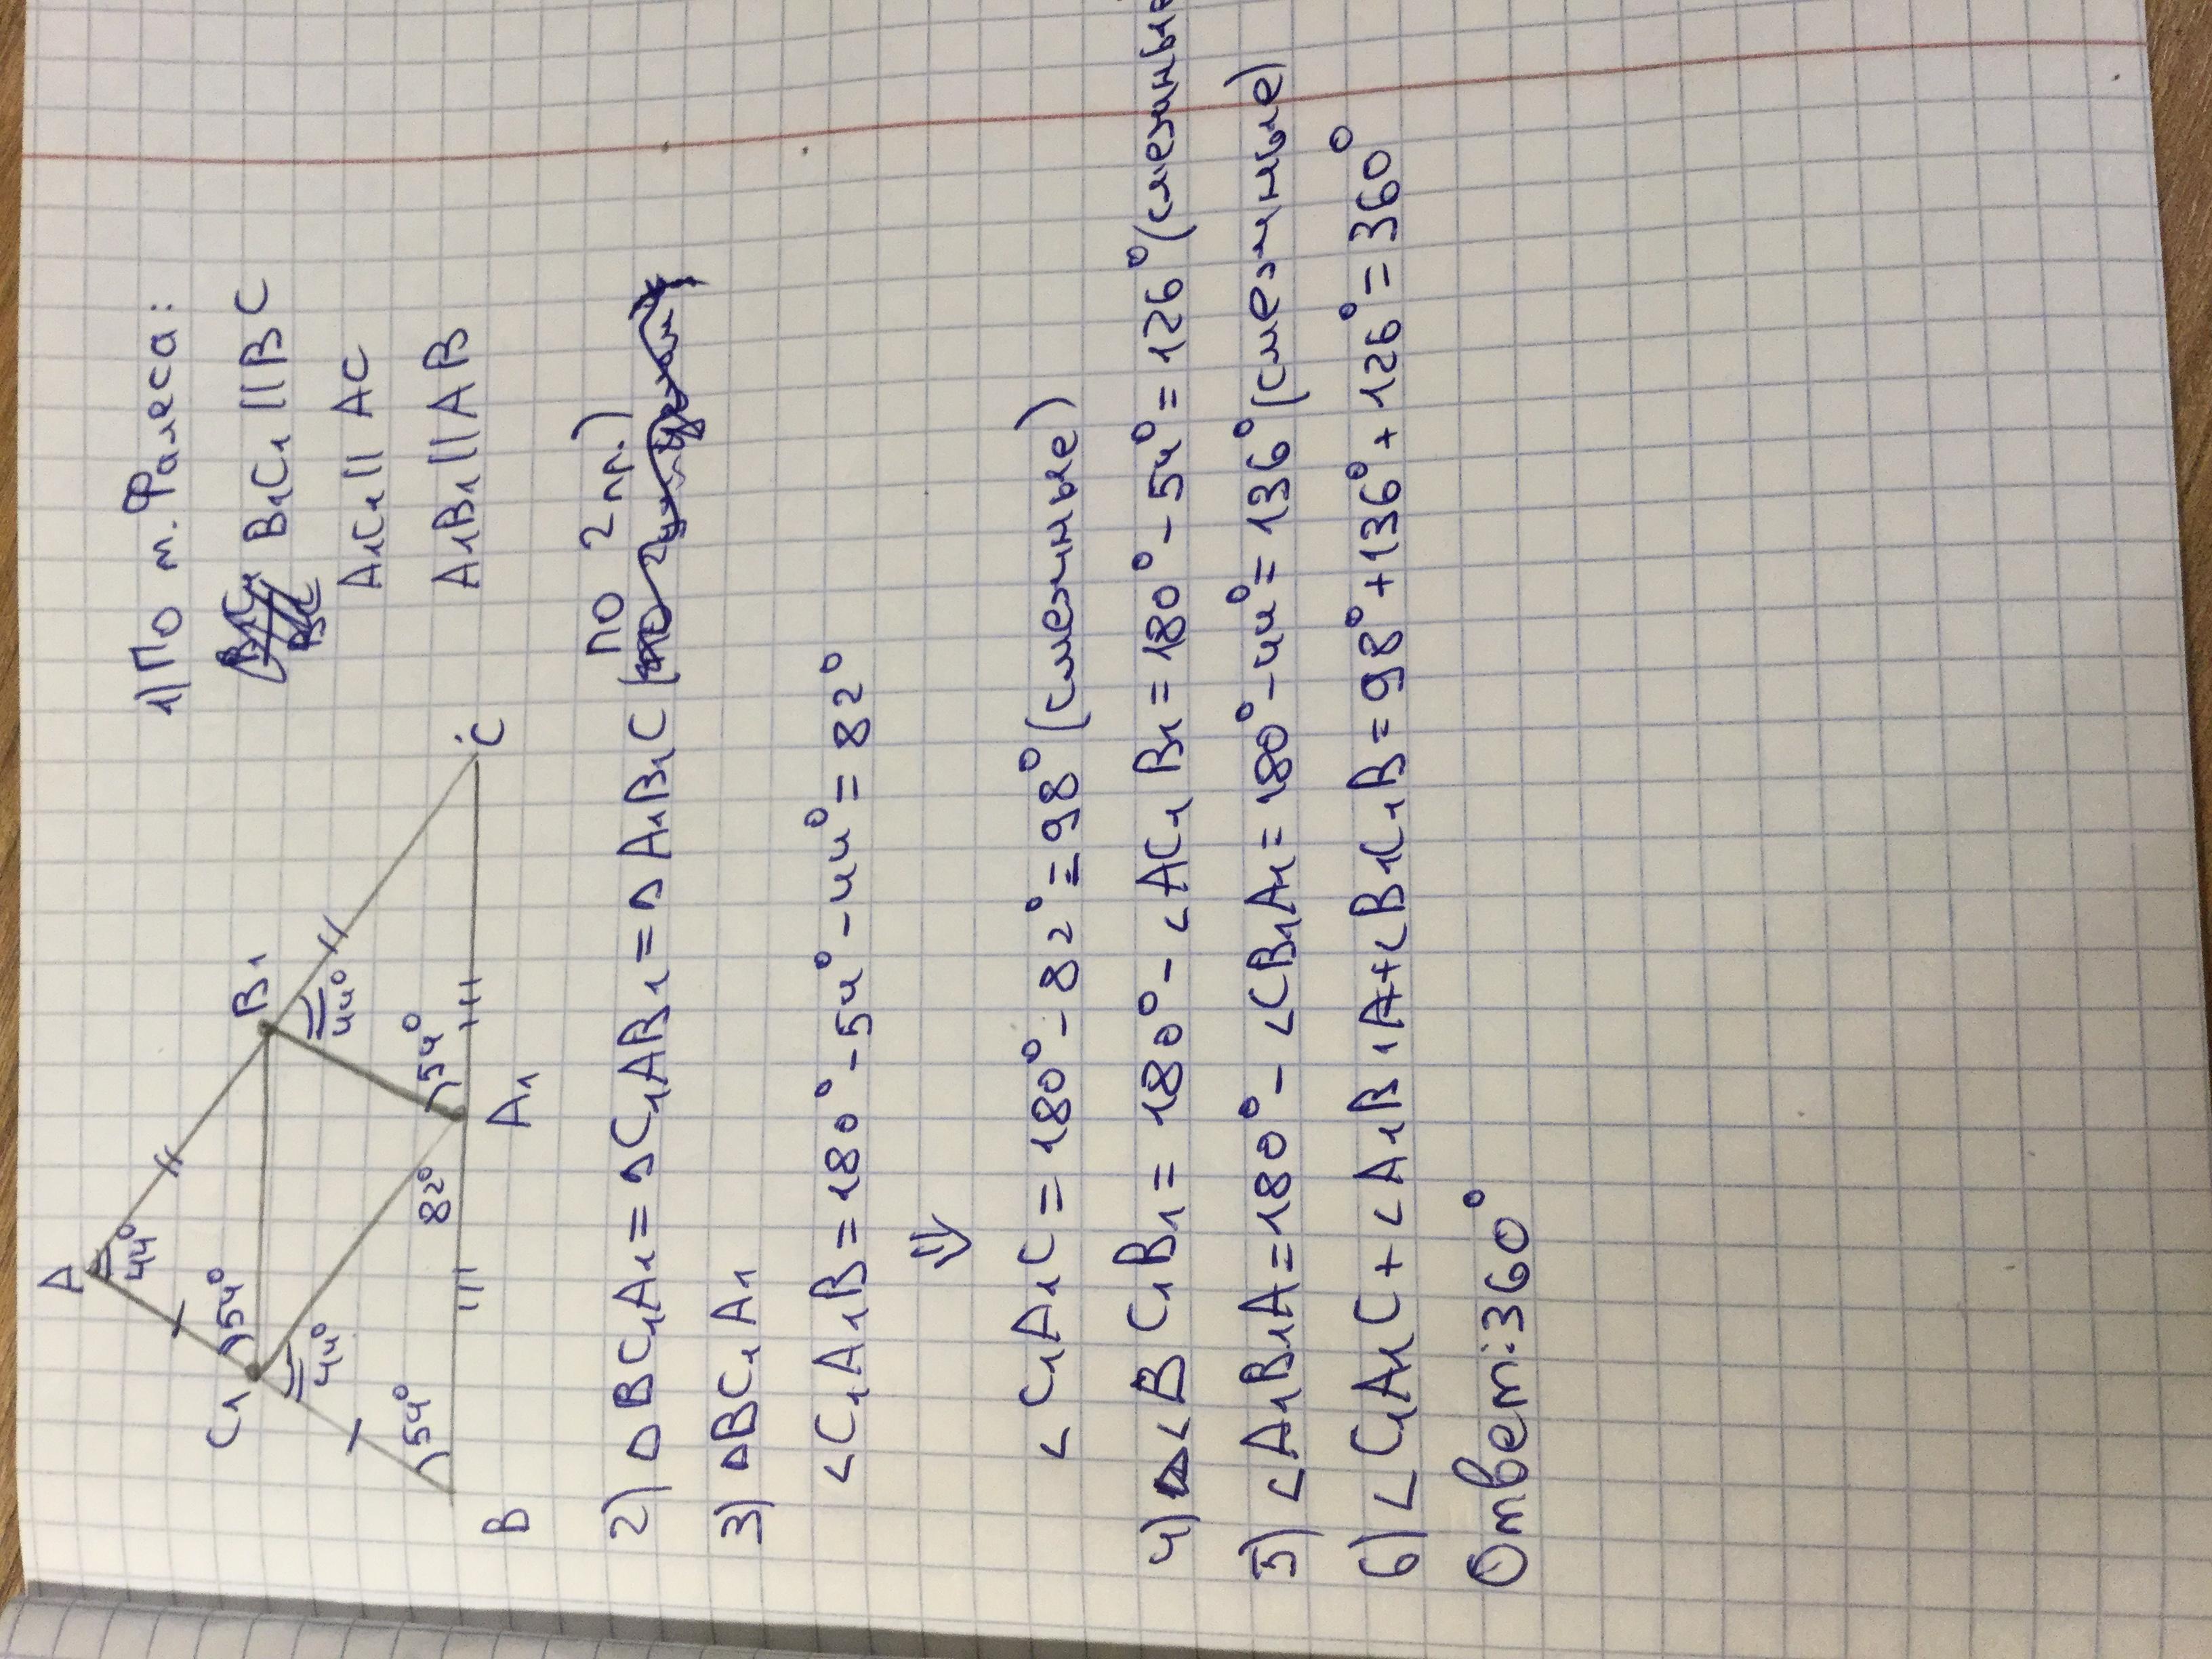 A
44°
C1
54°
B1
44°
44°
54°
B
82°
54°
A1
C
1) По т. Фалеса:
B1C1 || BC
A1C1 || AC
A1B1 || AB
2) ΔBC1A1 = ΔC1AB1 = ΔA1B1C (по 2 пр.)
3) ΔBC1A1
∠C1A1B = 180° - 54° - 44° = 82°
⇓
∠C1A1C = 180° - 82° = 98° (смежные)
4) ∠BC1B1 = 180° - ∠AC1B1 = 180° - 54° = 126° (смежные
5) ∠A1B1A = 180° - ∠CB1A1 = 180° - 44° = 136° (смежные)
6) ∠C1A1C + ∠A1B1A + ∠B1C1B = 98° + 136° + 126° = 360°
Ответ: 360°